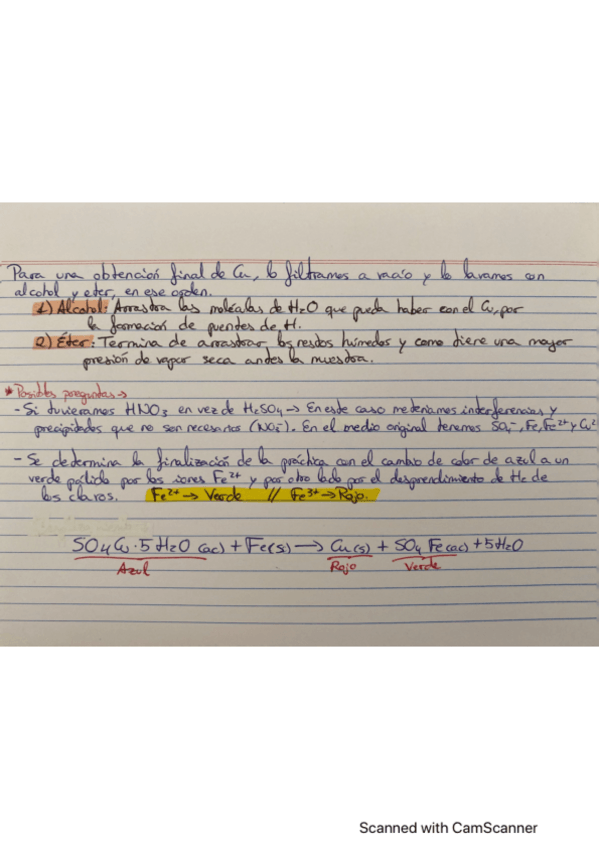 Para una obtención final de Cu, lo filtramos a vacío y lo lavamos con
alcohol y eter, en ese orden.
1) Alcohol: Arrastra las moléculas de H2O que pueda haber con el Cu, por
la formación de puentes de H.
2) Éter: Termina de arrastrar los restos húmedos y como tiene una mayor
presión de vapor seca antes la muestra.
* Posibles preguntas →
- Si tuvieramos HNO3 en vez de H2SO4 → En este caso meteríamos interferencias y
precipitados que no son necesarios (NO3-). En el medio original tenemos SO4-, Fe, Fe2+ y Cu2
- Se determina la finalización de la práctica con el cambio de color de azul a un
verde pálido por los iones Fe2+ y por otro lado por el desprendimiento de H2 de
los clavos. Fe2+ → Verde // Fe3+ → Rojo.
SO4Cu·5H2O (ac) + Fe(s) → Cu(s) + SO4Fe(ac) + 5H2O
Azul Rojo Verde
Scanned with CamScanner